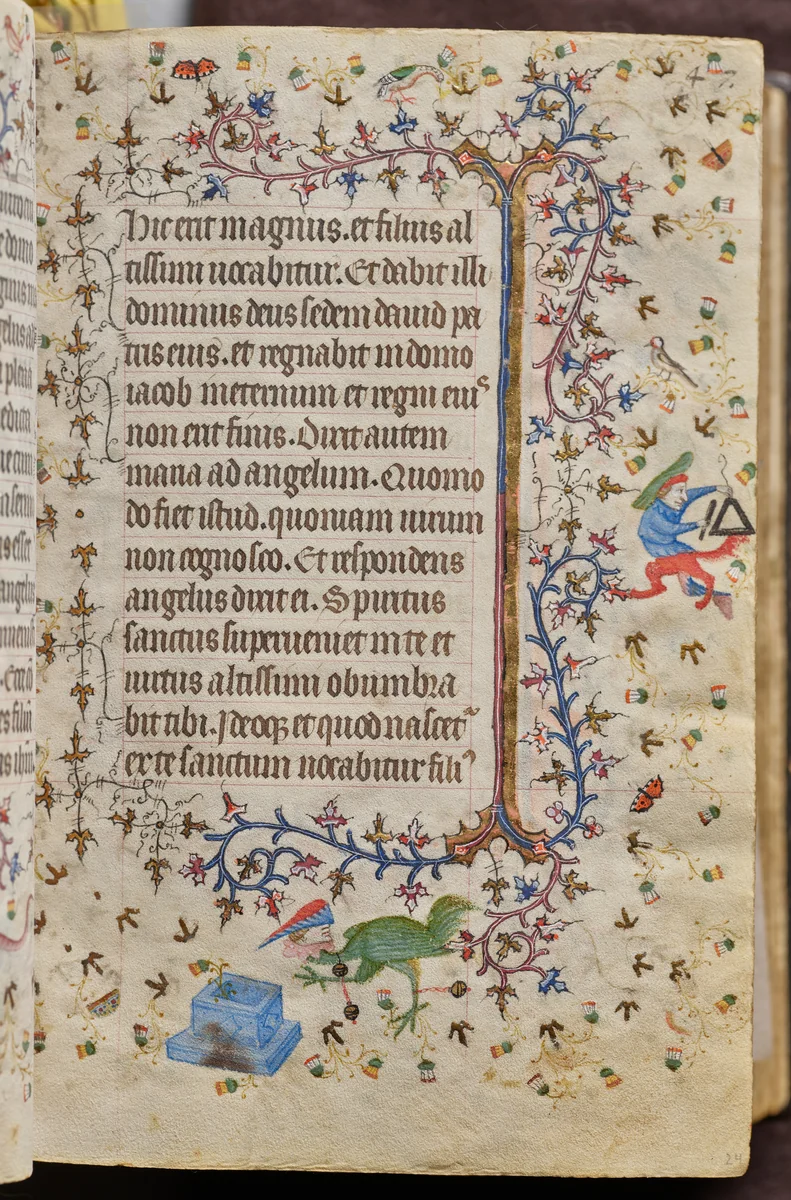 Hic erit magnus. et filius al
tissimi uocabitur. Et dabit illi
dominus deus sedem dauid pa
tris eius. et regnabit in domo
iacob in eternum et regni eiuˢ
non erit finis. Dixit autem
maria ad angelum. Quomo
do fiet istud. quoniam uirum
non cognosco. Et respondens
angelus dixit ei. Spiritus
sanctus superueniet in te et
uirtus altissimi obumbra
bit tibi. Ideoqꝫ et quod nascet᷑
ex te sanctum uocabitur filiꝰ
24